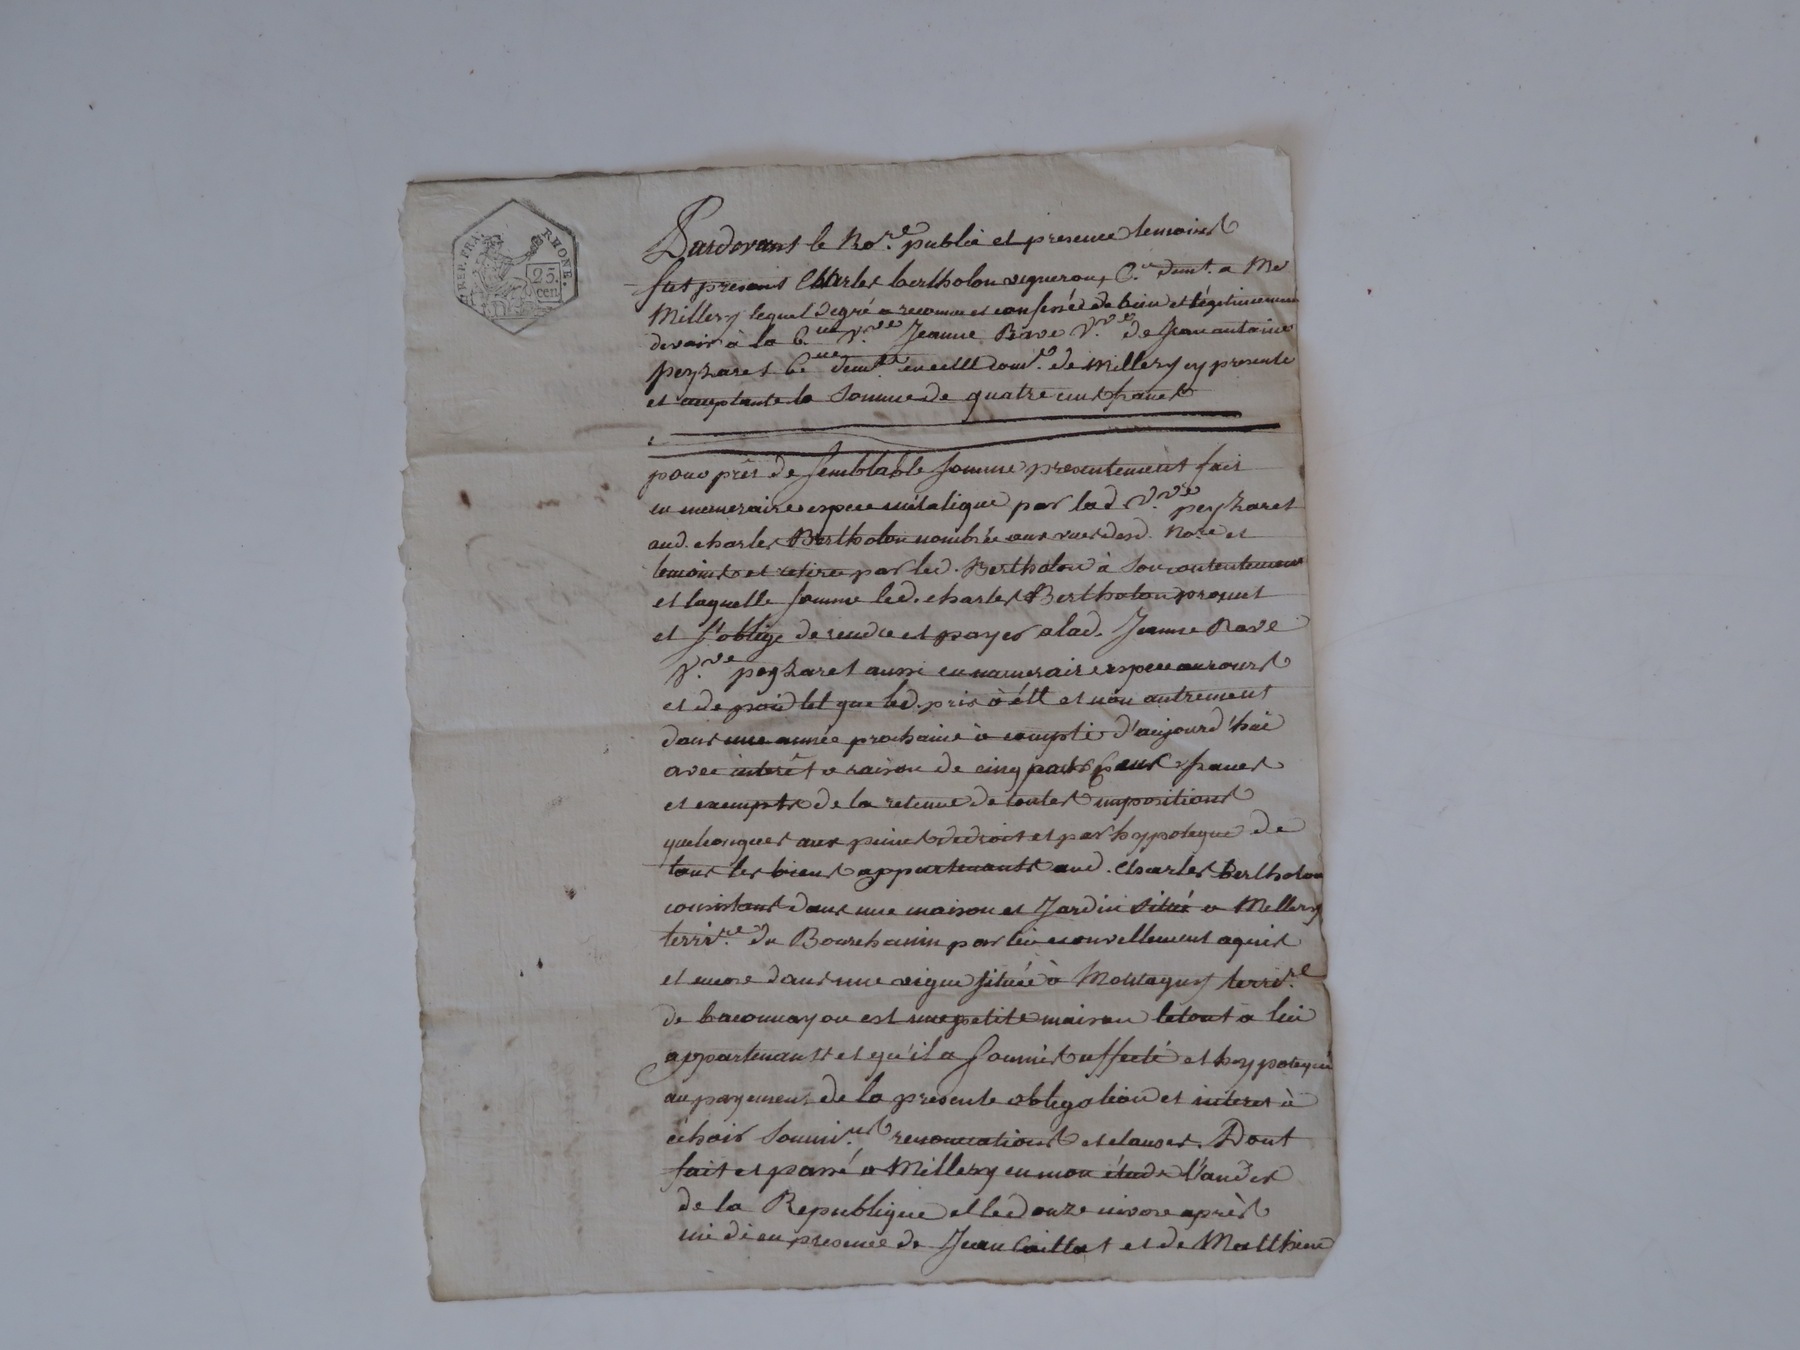 REP. FRA.
RHONE.
25
cen
Pardevant le No.re public et presence temoins
fut present Charles bertholon vigneron, C.n demt. a
Millery lequel degré a reconnu et confessé de bien et légitimement
devoir à la C.ne V.ve Jeanne Rave V.ve de Jean antoine
peyzaret C.ne demte. de Millery cy presente
et acceptante la Somme de quatre cent francs
pour prêt de Semblable Somme presentement fait
en numeraire espece métalique par lad. V.ve peyzaret
aud. charles Bertholon nombrée aux vues desd. Nore et
temoins et retiré par led. Bertholon à Son contentement
et laquelle Somme led. charles Bertholon promet
et S'oblige de rendre et payer a lad. Jeanne Rave
V.ve peyzaret aussi en numeraire espece au cours
et de poid tel que led. pris à été et non autrement
dans une année prochaine à compté d'aujourd'hui
avec interêt a raison de cinq pour cent francs
et exempts de la retenue de toutes impositions
quelconques aux peines de droit et par hypoteque de
tous les biens appartenants aud. Charles Bertholon
consistant dans une maison et Jardin situé a Millery
terri.re du Bourchanin par lui nouvellement aquis
et encore dans une vigne située à Montagny terri.re
de baconnay ou est une petite maison le tout a lui
appartenants et qu'il a Soumis affecté et hypotequé
au payement de la presente obligation et interet à
échoir Soumi.ns renonciations et clauses. Dont
fait et passé a Millery en mon étude l'an dix
de la Republique et le douze nivose après
midi en presence de Jean Caillot et de Matthieu